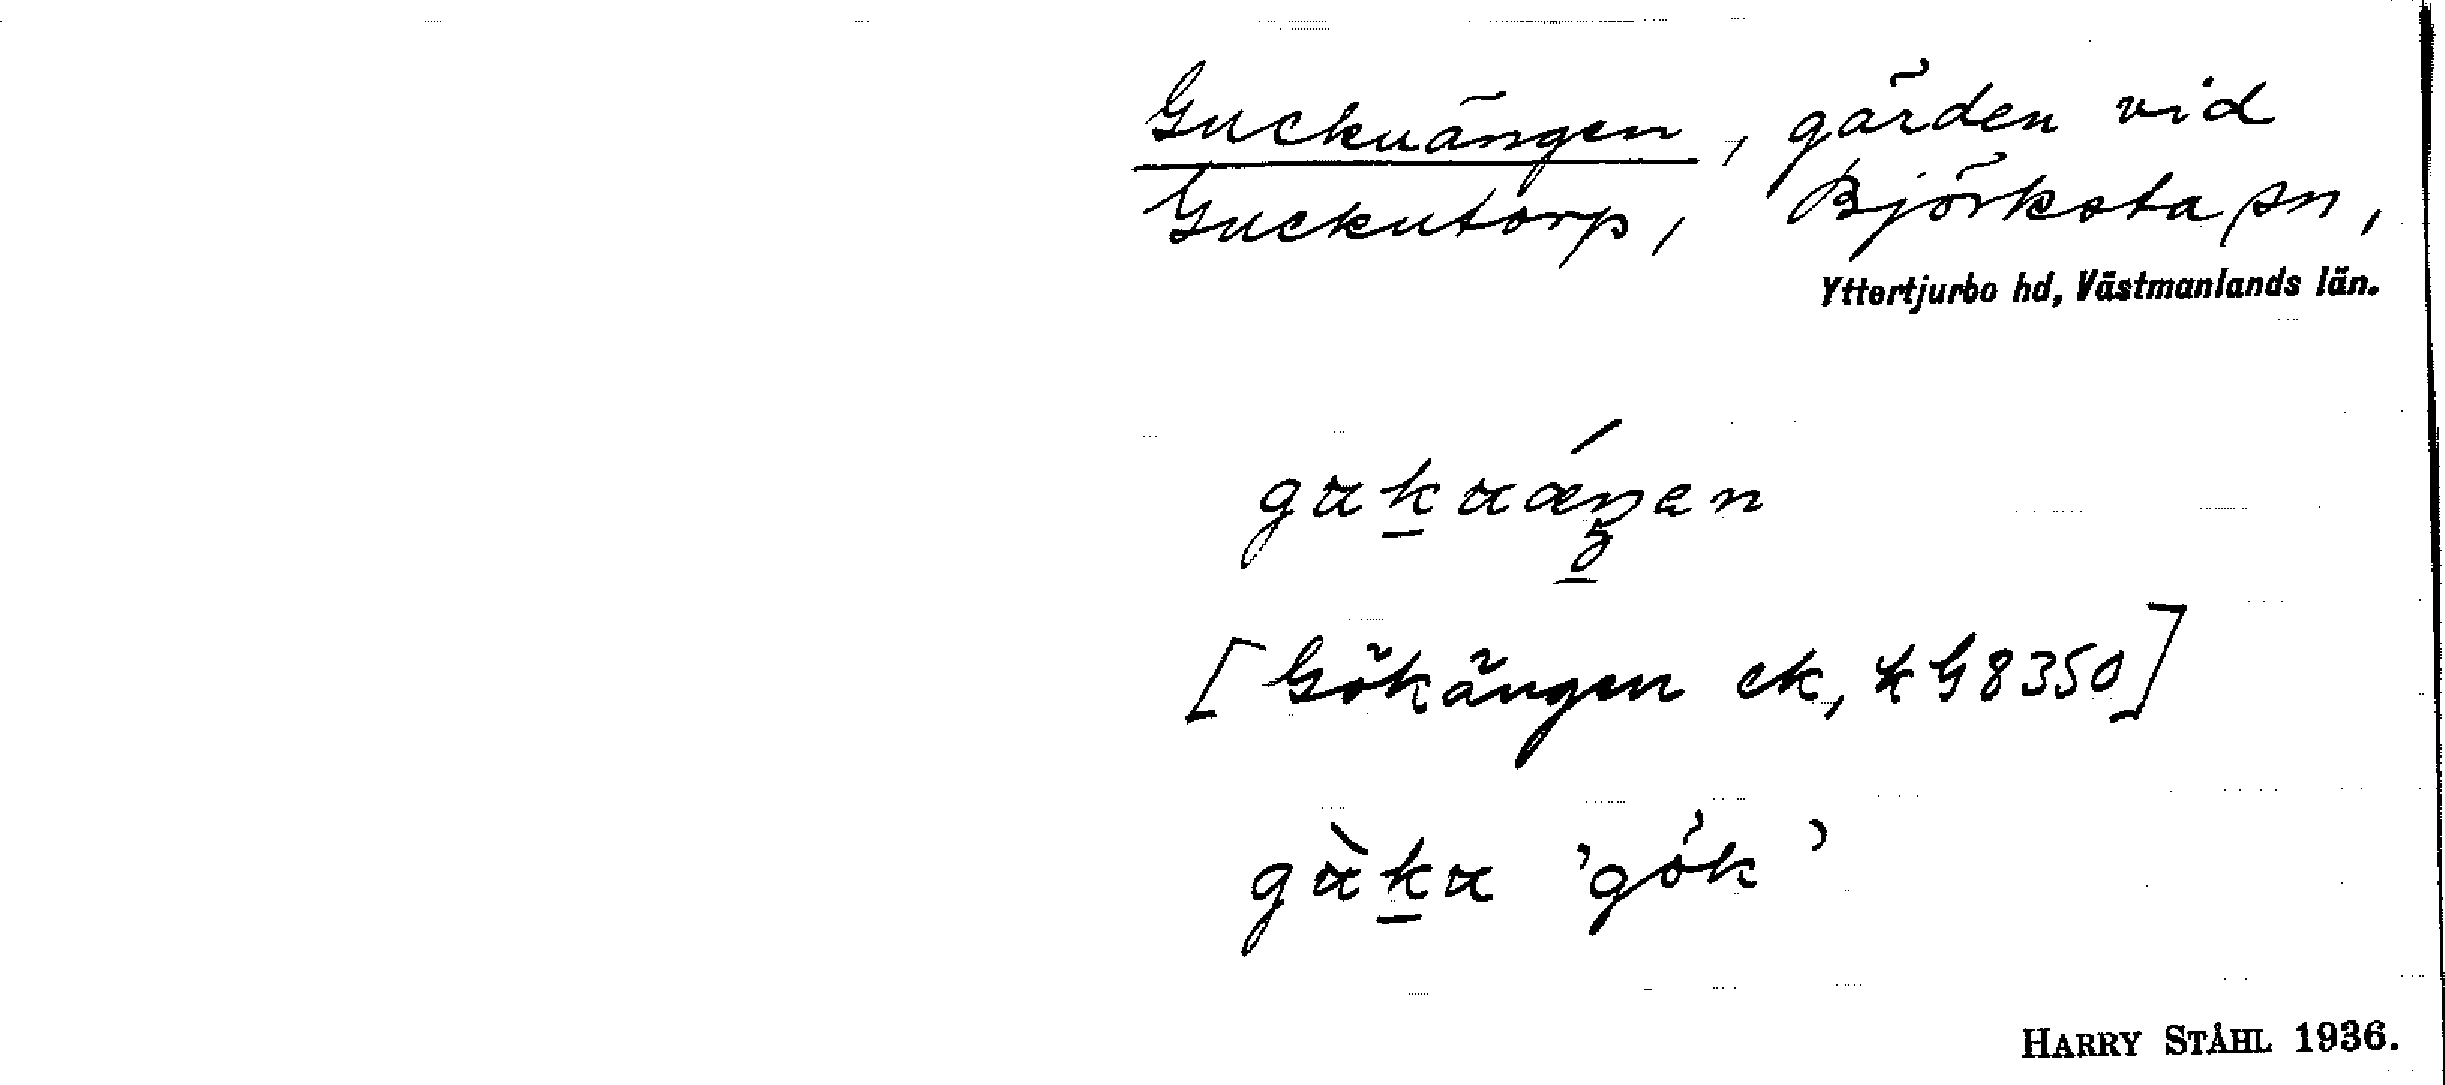 Guckuängen, gärden vid
Guckutorp, Björksta sn,
Yttertjurbo hd, Västmanlands län.
[Gökängen ek,
8350]
'gök'
HARRY STÅHL 1936.